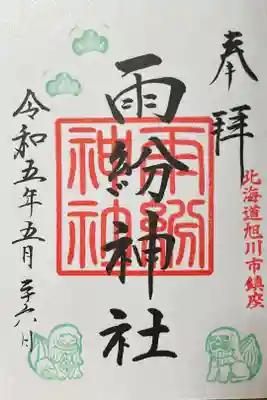 奉拝
北海道旭川市鎮座
雨紛神社
雨紛
神社
令和五年五月二十六日